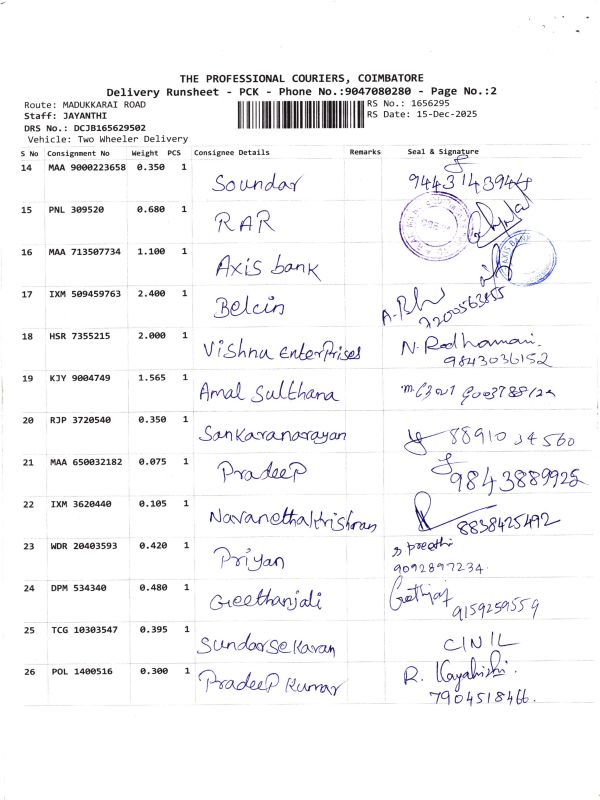 THE PROFESSIONAL COURIERS, COIMBATORE
Delivery Runsheet - PCK - Phone No.:9047080280 - Page No.:2
Route: MADUKKARAI ROAD RS No.: 1656295
Staff: JAYANTHI RS Date: 15-Dec-2025
DRS No.: DCJB165629502
Vehicle: Two Wheeler Delivery
S No Consignment No Weight PCS Consignee Details Remarks Seal & Signature
14 MAA 9000223658 0.350 1 Soundar
15 PNL 309520 0.680 1 RAR
16 MAA 713507734 1.100 1 Axis bank
17 IXM 509459763 2.400 1 Belcin 7200563455
18 HSR 7355215 2.000 1 Vishnu Enterprises N. Radhamani.
9843036152
19 KJY 9004749 1.565 1 Amal Sulthana
20 RJP 3720540 0.350 1 Sankaranarayan 8891034560
21 MAA 650032182 0.075 1 Pradeep 9843889925
22 IXM 3620440 0.105 1 Navanethakrishnan 8838425492
23 WDR 20403593 0.420 1 Priyan S. preethi
9092897234.
24 DPM 534340 0.480 1 Geethanjali
9159259559
25 TCG 10303547 0.395 1 Sundarsekaran CINIL
26 POL 1400516 0.300 1 Pradeep Kumar R.
7904518466.